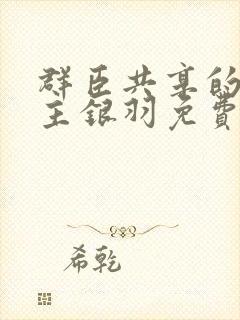 群臣共享的
主银羽免费
希乾